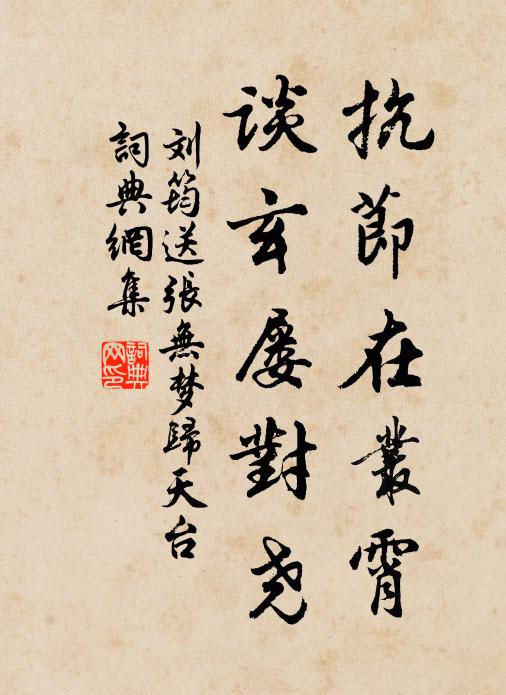 抗節在叢霄
谈玄屡對尧
刘筠送張無梦歸天台
詞典網集
詞典網印